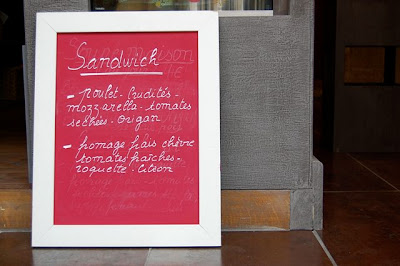 Sandwich
- poulet - crudités -
mozzarella - tomates
séchées - origan
- fromage frais chèvre
tomates fraîches -
roquette - citron